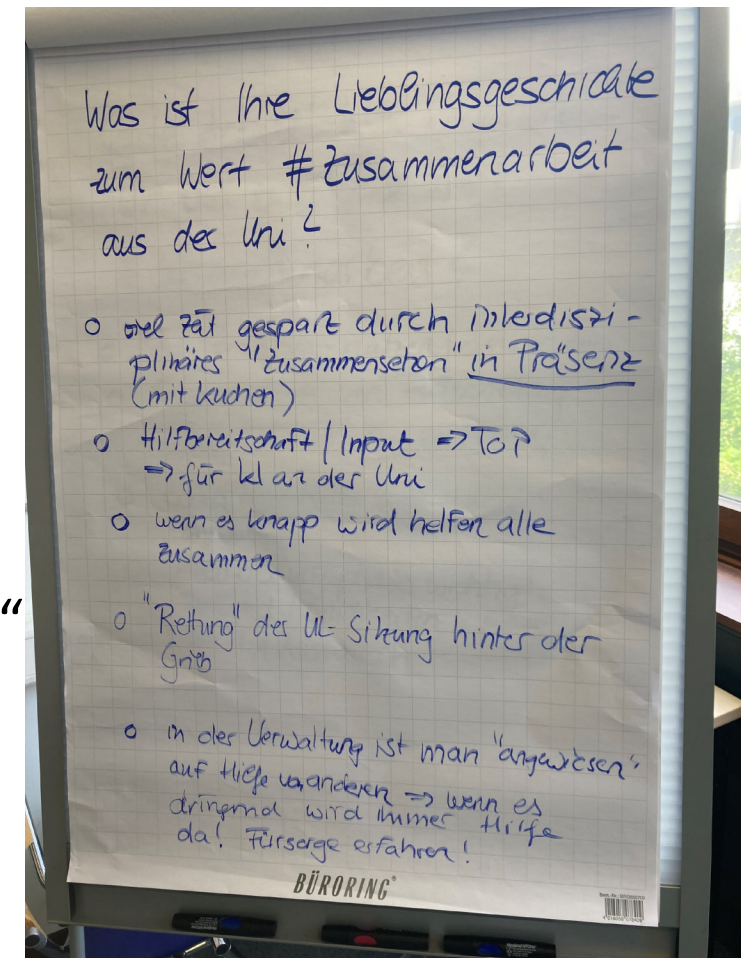 Was ist Ihre Lieblingsgeschichte
zum Wert #Zusammenarbeit
aus der Uni?
o viel Zeit gespart durch interdiszi-
plinäres "Zusammensetzen" in Präsenz
(mit Kuchen)
o Hilfbereitschaft / Input => TOP
=> für an der Uni
o wenn es knapp wird helfen alle
zusammen
o "Rettung" der UL-Sitzung hinter der
o in der Verwaltung ist man "angewiesen"
auf Hilfe von anderen => wenn es
dringend wird immer Hilfe
da! Fürsorge erfahren!
BÜRORING
“